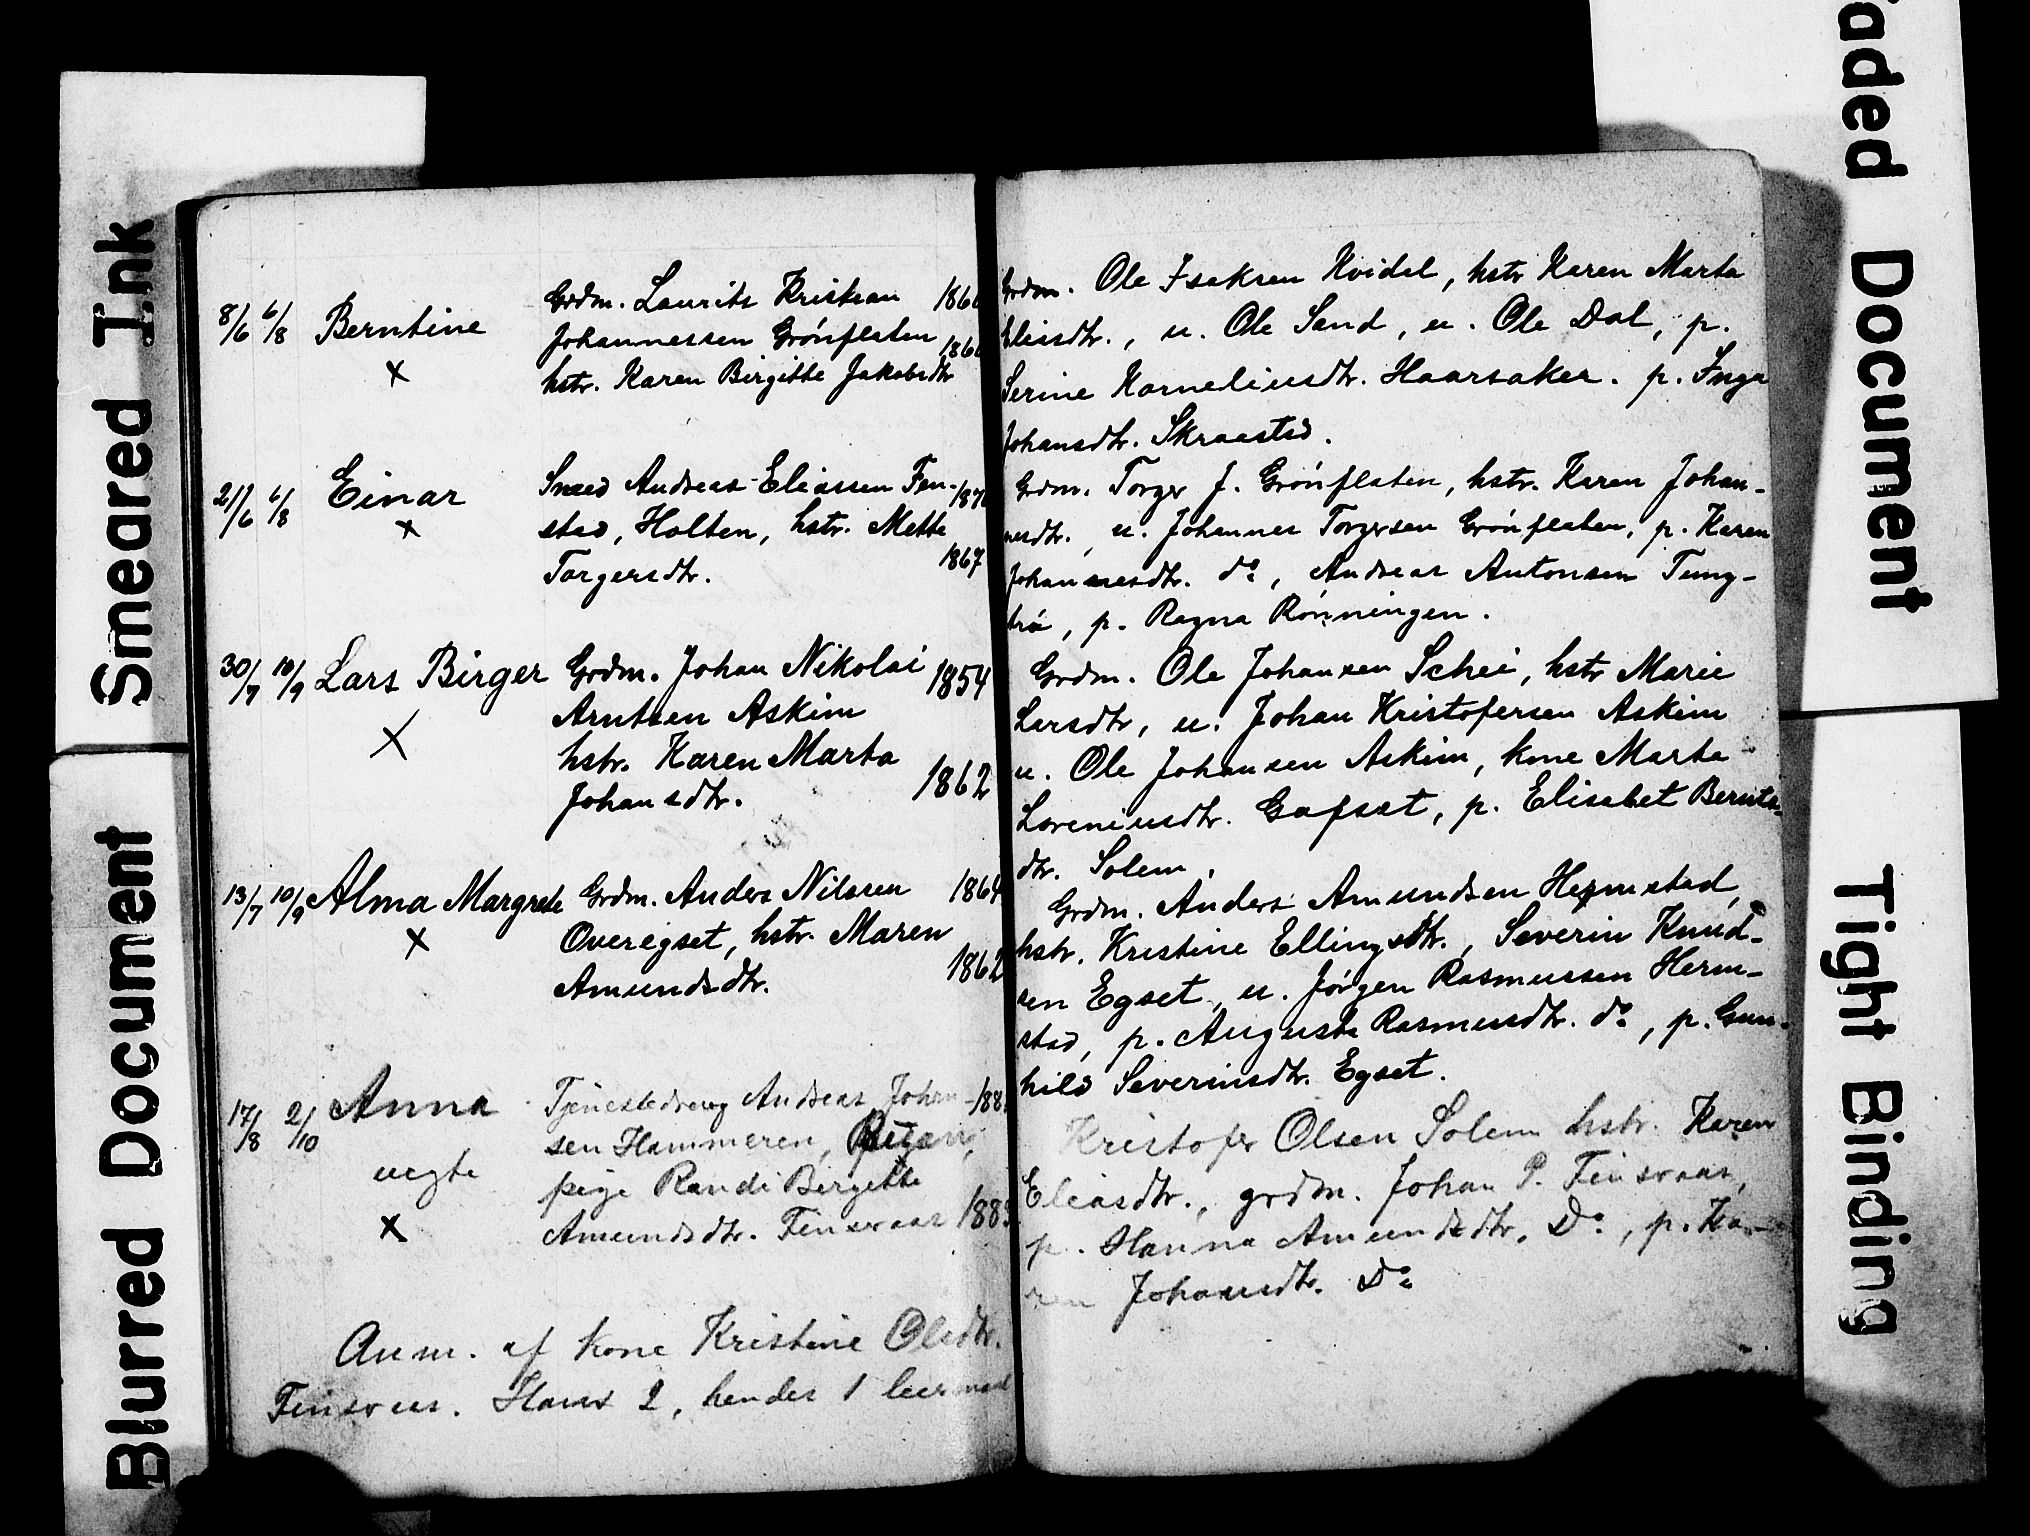 Smeared Ink
Blurred Document
8/6 6/8 Berntine
x
Grdm. Laurits Kristian
Johannessen Grönflaten
hstr. Karen Birgitte Jakobsdtr
21/6 6/8 Einar
x
Andreas Eliassen Fen- 187
stad, Holten, hstr. Mette
1867
Torgersdtr.
30/7 10/9 Lars Birger
x
Grdm. Johan Nikolai 1854
Arntsen Askim
hstr. Karen Marta
Johansdtr. 1862
13/7 10/9 Alma Margrete
x
Grdm. Anders Nilssen 1864
Overegset, hstr. Maren
Amundsdtr. 1862
17/8 2/10 Anna
uegte
x
Tjenestedreng Andreas Johan- 188
sen Hammeren,
pige Randi Birgitte
Amundsdtr. Finsvaas 188
Anm. af kone Kristine Olsdtr.
Finsvas. Hans 2, hendes 1 leiermaal
Grdm. Ole Isaksen Kvidal, hstr Karen Marta
Eliasdtr., u. Ole Sand, u. Ole Dal, p.
Serine Korneliusdtr. Haarsaker. p. Inga
Johansdtr. Skraastad.
Grdm. Torger J. Grönflaten, hstr. Karen Johan-
nesdtr., u. Johannes Torgersen Grönflaten, p. Karen
Johannesdtr. do, Andreas Antonsen Tung-
trö, p. Ragna Rönningen.
Grdm. Ole Johansen Schei, hstr Marie
Larsdtr, u. Johan Kristofersen Askim
u. Ole Johansen Askim, kone Marta
Loreniusdtr. Gafset, p. Elisabet Bernts-
dtr. Solem.
Grdm. Anders Amundsen Hermstad,
hstr. Kristine Ellingsdtr., Severin Knud-
sen Egset, u. Jörgen Rasmussen Herm-
stad, p. Augusta Rasmusdtr. do, p. Gun-
hild Severinsdtr. Egset.
Kristofer Olsen Solem hstr. Karen
Eliasdtr., grdm. Johan P. Finsvaas,
p. Hanna Amundsdtr. Do, p. Ka-
ren Johansdtr. Do
aded Document
Tight Binding